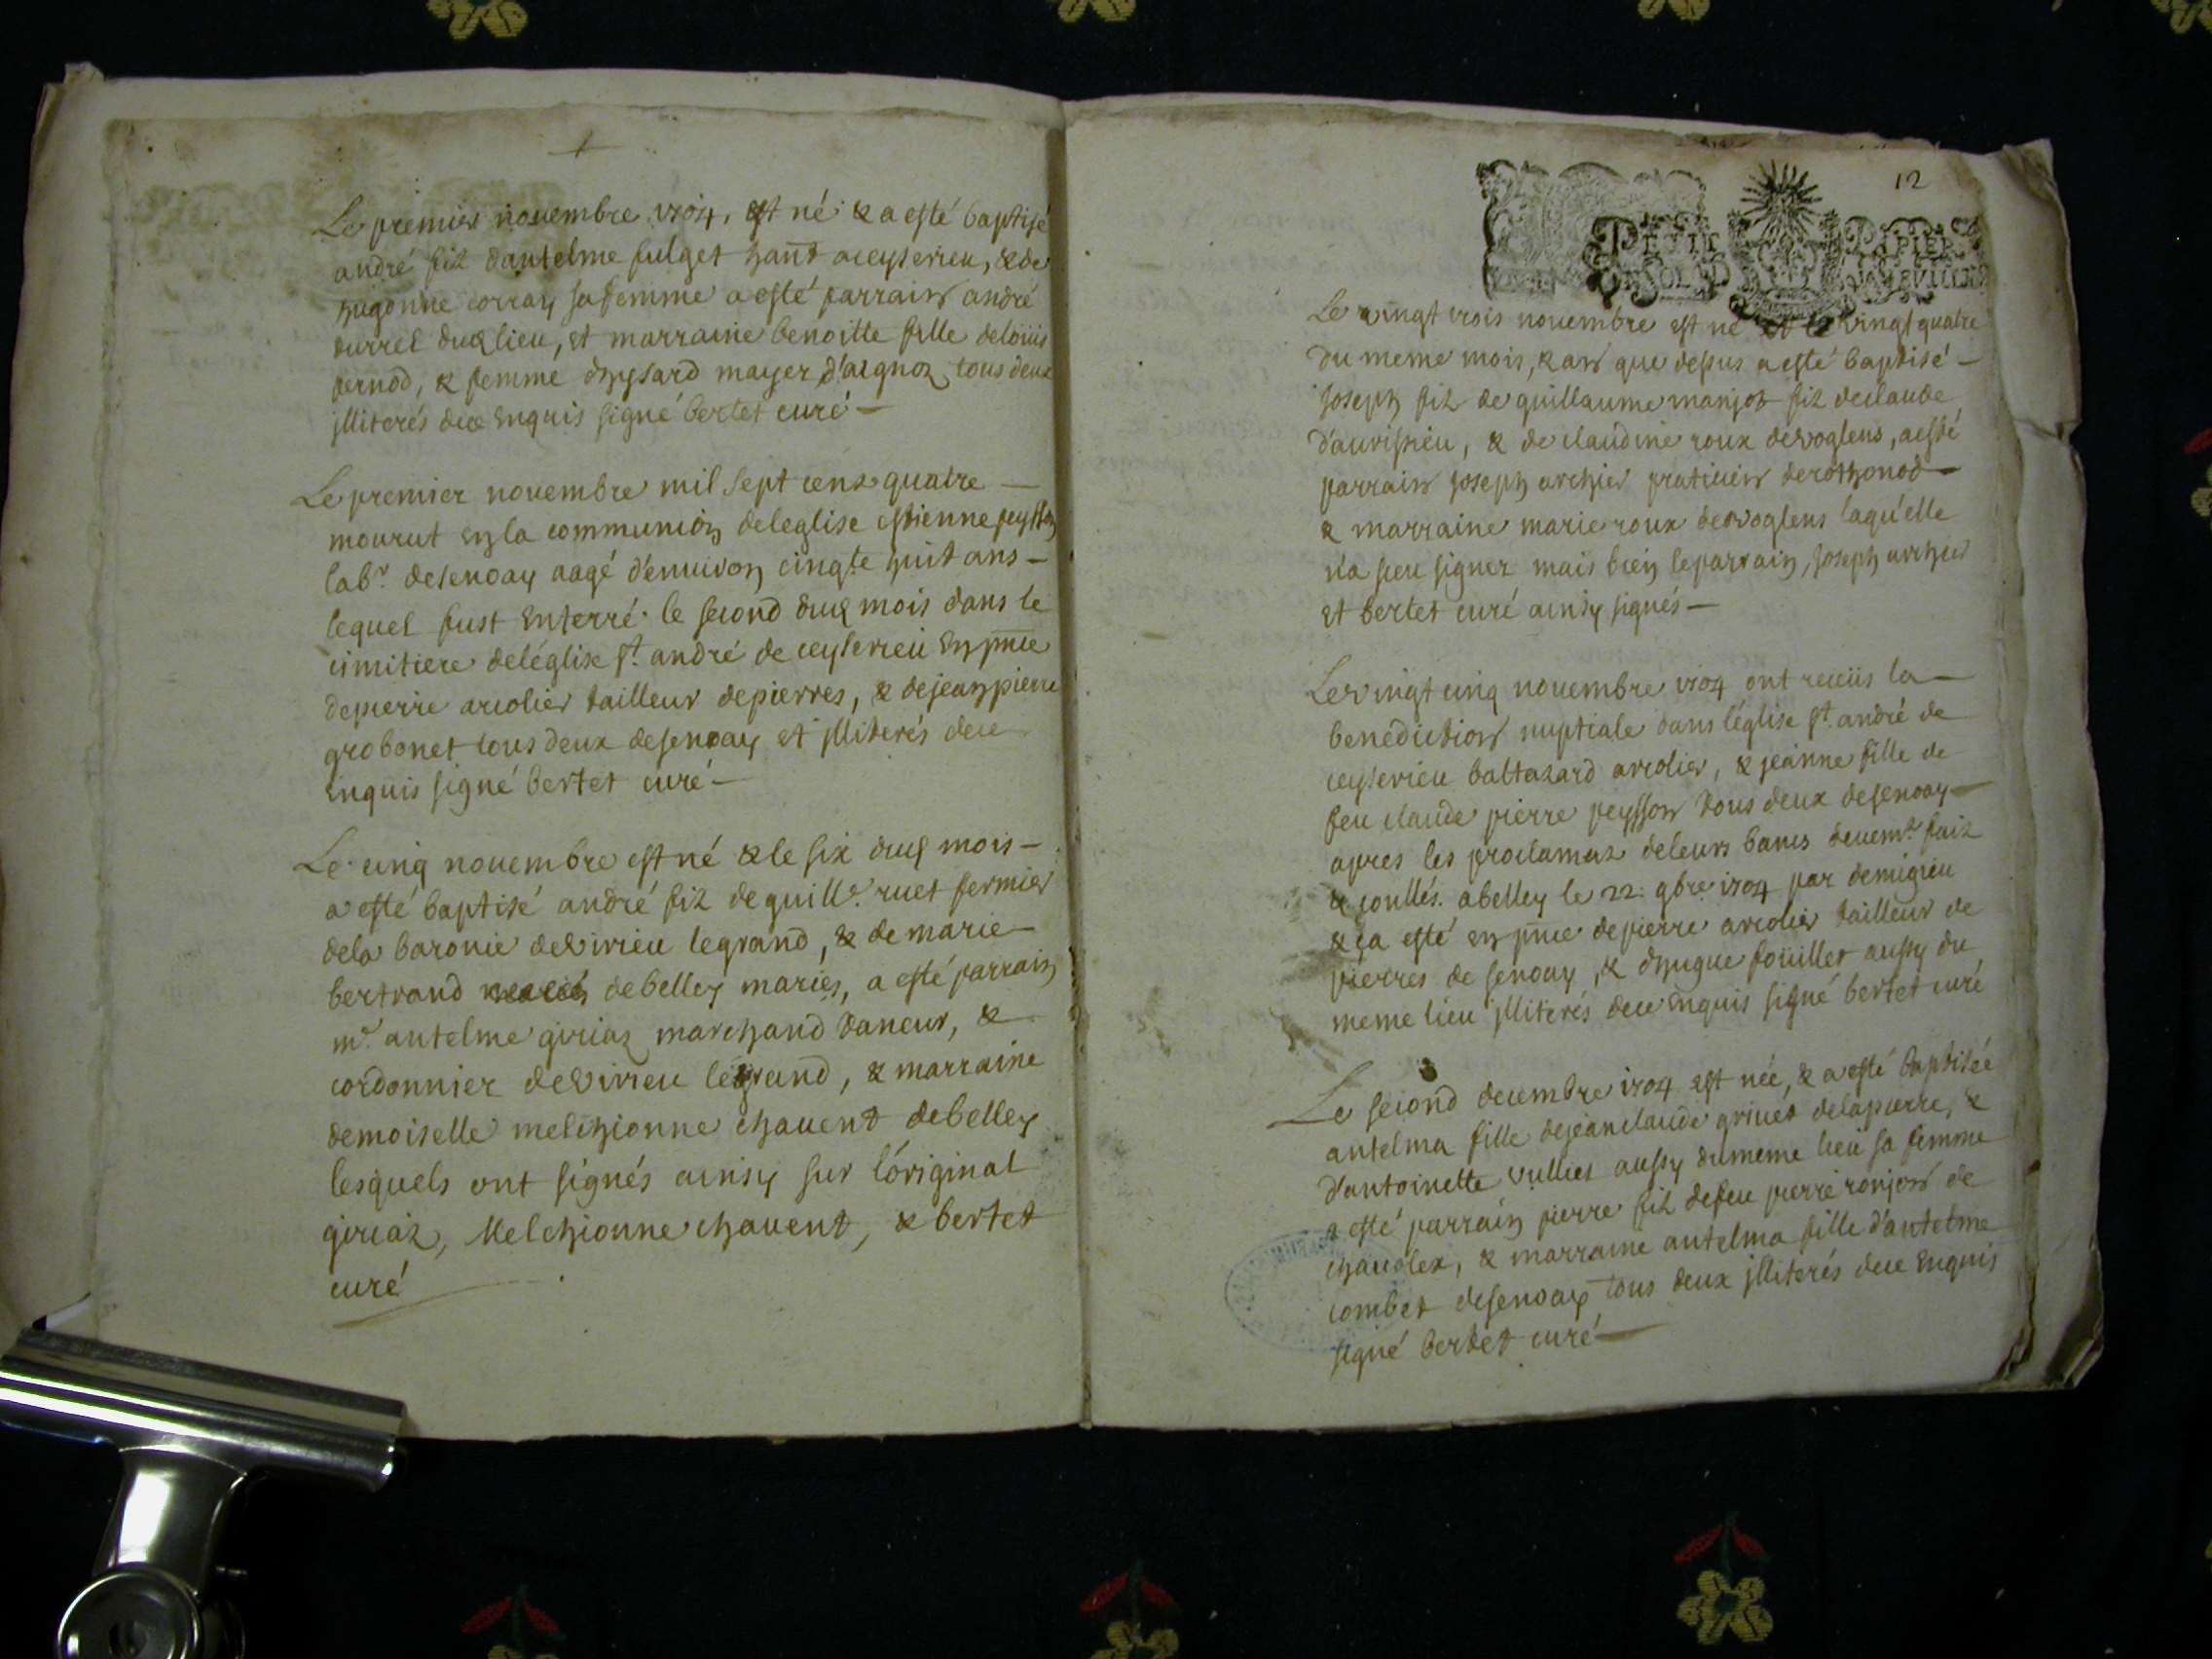 Le premier novembre 1704, est né & a esté baptisé
andré fiz dantelme fulget hant a ceyserieu, & de
hugonne corray sa femme a esté parrain andré
durrel dud lieu, et marraine benoitte fille de loüis
pernod, & femme dhysard mayer d'aignoz tous deux
jlliterés de ce enquis signé bertet curé —
Le premier novembre mil sept cens quatre —
mourut en la communion de leglise estienne peysson
labr. de senoay aagé d'environ cinqte huit ans —
lequel fust enterré le second dud mois dans le
cimitiere de léglise st. andré de ceyserieu en pnce
de pierre arcolier tailleur de pierres, & de jean pierre
grobonet tous deux de senoay et jlliterés de ce
enquis signé bertet curé —
Le cinq novembre est né & le six dud mois —
a esté baptisé andré fiz de guille. ruet fermier
de la baronie de virieu le grand, & de marie
bertrand de belley mariés, a esté parrain
mr. antelme giriaz marchand taneur, &
cordonnier de virieu le grand, & marraine
demoiselle melchionne chavent de belley
lesquels ont signés ainsy sur l'original
giriaz, Melchionne chavent, & bertet
curé
12
PETIT PAPIER
Le vingt trois novembre est né et le vingt quatre
du meme mois, & an que dessus a esté baptisé —
joseph fiz de guillaume manjot fiz de claude
d'avrissieu, & de claudine roux de voglens, a esté
parrain joseph archier praticien de rothonod —
& marraine marie roux de voglens laqu'elle
n'a sceu signer mais bien le parrain, joseph archier
et bertet curé ainsy signés —
Le vingt cinq novembre 1704 ont receüs la —
benediction nuptiale dans l'église st. andré de
ceyserieu baltazard arcolier, & jeanne fille de
feu claude pierre peysson tous deux de senoay —
apres les proclamaz de leurs bancs deuemt. faiz
& coullés. a belley le 22. 9bre 1704 par demigieu
& ça esté en pnce de pierre arcolier tailleur de
pierres de senoay, & d'hugue foüillet aussy du
meme lieu jlliterés de ce enquis signé bertet curé
Le second decembre 1704 est née, & a esté baptisée
antelma fille de jean claude grivet de lapierre, &
d'antoinette vulliet aussy du meme lieu sa femme
a esté parrain pierre fiz de feu pierre ronjon de
chavolex, & marraine antelma fille d'antelme
combet de senoay tous deux jlliterés de ce enquis
signé bertet curé —